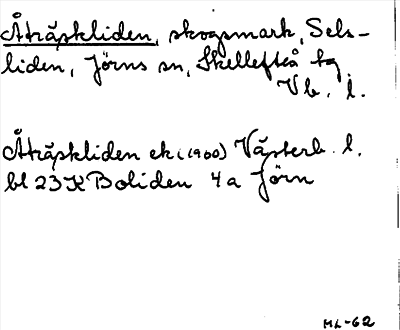 Åträskliden, skogsmark, Sels-
liden, Jörns sn, Skellefteå tg
Vb. l.
Åträskliden ek (1960) Västerb. l.
bl 23 K Boliden 4a Jörn
ML-62